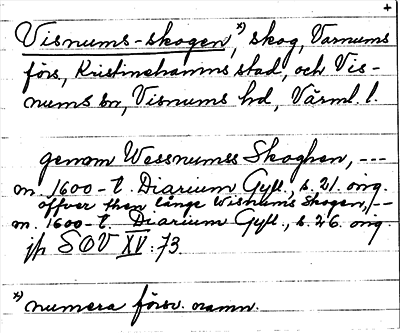 +
Visnums-skogen, *) skog, Varnums
förs, Kristinehamns stad, och Vis-
nums sn, Visnums hd, Värml. l.
genom Wessnumss Skoghen, ---
m. 1600-t. Diarium Gyll., s. 21. orig.
öffver then långe Wisnums Skogen, /--
m. 1600-t. Diarium Gyll., s. 26. orig.
jfr SOV XV: 73.
*) numera försv. namn.